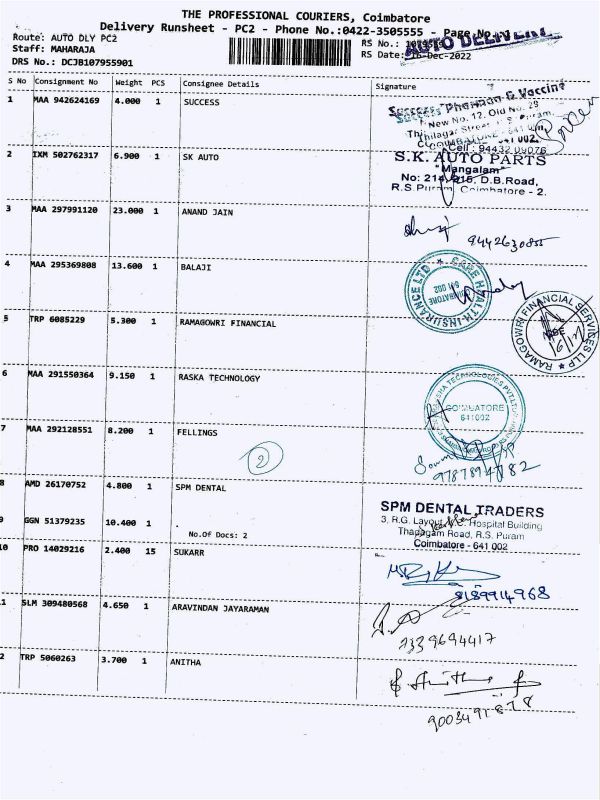 THE PROFESSIONAL COURIERS, Coimbatore
Delivery Runsheet - PC2 - Phone No.:0422-3505555 - Page No.:1
AUTO DELIVERY
Route: AUTO DLY PC2
RS No.:
Staff: MAHARAJA
RS Date: 16-Dec-2022
DRS No.: DCJB107955901
S No Consignment No Weight PCS Consignee Details Signature
1 MAA 942624169 4.000 1 SUCCESS
Success Pharman & Vaccine
New No. 12, Old No. 29
Thilagar Street
COIMBATORE - 641 002.
Cell : 94432
2 IXM 502762317 6.900 1 SK AUTO
S.K. AUTO PARTS
"Mangalam"
No: 214, 215, D.B.Road,
R.S.Puram, Coimbatore - 2.
3 MAA 297991120 23.000 1 ANAND JAIN
9442630855
4 MAA 295369808 13.600 1 BALAJI
CARE HEALTH INSURANCE LTD
COIMBATORE
641 002
5 TRP 6085229 5.300 1 RAMAGOWRI FINANCIAL
RAMAGOWRI FINANCIAL SERVICES LLP
6 MAA 291550364 9.150 1 RASKA TECHNOLOGY
TECHNOLOGIES PVT.LTD
COIMBATORE
641002
7 MAA 292128551 8.200 1 FELLINGS
2
8 AMD 26170752 4.800 1 SPM DENTAL
SPM DENTAL TRADERS
3, R.G. Layout, Hospital Building
Thadagam Road, R.S. Puram
Coimbatore - 641 002
9 GGN 51379235 10.400 1 .
No.Of Docs: 2
10 PRO 14029216 2.400 15 SUKARR
8189914968
11 SLM 309480568 4.650 1 ARAVINDAN JAYARAMAN
7339694417
12 TRP 5060263 3.700 1 ANITHA